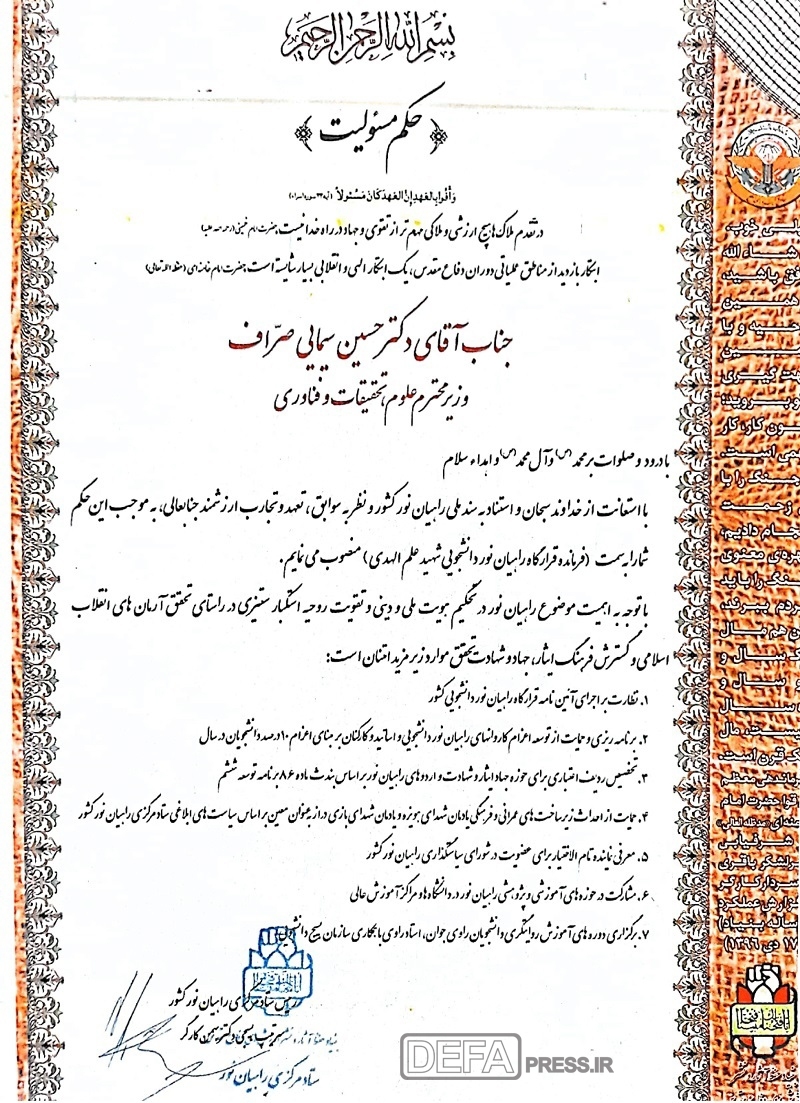 بسم الله الرحمن الرحیم
حکم مسئولیت
وَ أَوْفُوا بِالْعَهْدِ إِنَّ الْعَهْدَ كَانَ مَسْئُولًا
در تقدم ملاک‌ها هیچ ارزشی و ملاکی مهم‌تر از تقوی و جهاد در راه خدا نیست حضرت امام خمینی
ابتکار بازدید از مناطق عملیاتی دوران دفاع مقدس، یک ابتکار الهی و انقلابی بسیار شایسته است حضرت امام خامنه‌ای
جناب آقای دکتر حسین سیمایی صرّاف
وزیر محترم علوم، تحقیقات و فناوری
با درود و صلوات بر محمد(ص) و آل محمد(ص) و اهداء سلام
با استعانت از خداوند سبحان و استناد به سند ملی راهیان نور کشور و نظر به سوابق، تعهد و تجارب ارزشمند جنابعالی، به موجب این حکم
شما را به سمت (فرمانده قرارگاه راهیان نور دانشجویی شهید علم الهدی) منصوب می نمایم.
با توجه به اهمیت موضوع راهیان نور در تحکیم هویت ملی و دینی و تقویت روحیه استکبار ستیزی در راستای تحقق آرمان های انقلاب
اسلامی و گسترش فرهنگ ایثار، جهاد و شهادت تحقق موارد زیر مزید امتنان است:
۱. نظارت بر اجرای آئین نامه قرارگاه راهیان نور دانشجویی کشور
۲. برنامه ریزی و حمایت از توسعه اعزام کاروانهای راهیان نور دانشجویی و اساتید و کارکنان بر مبنای اعزام ۱۰ درصد دانشجویان در سال
۳. تخصیص ردیف اعتباری برای حوزه جهاد ایثار و شهادت و اردوهای راهیان نور بر اساس بند ث ماده ۸۶ برنامه توسعه ششم
۴. حمایت از احداث زیرساخت های عمرانی و فرهنگی یادمان شهدای هویزه و یادمان شهدای بازی دراز به عنوان معین بر اساس سیاست های ابلاغی ستاد مرکزی راهیان نور کشور
۵. معرفی نماینده تام الاختیار برای عضویت در شورای سیاستگذاری راهیان نور کشور
۶. مشارکت در حوزه های آموزشی و پژوهشی راهیان نور در دانشگاه ها و مراکز آموزش عالی
۷. برگزاری دوره های آموزش روایتگری دانشجویان راوی جوان، استاد راوی با همکاری سازمان بسیج دانشجویی
رئیس ستاد مرکزی راهیان نور کشور
سرتیپ ۲ بسیجی دکتر بهمن کارگر
ستاد مرکزی راهیان نور
DEFA PRESS.IR
خیلی خوب،
شاء الله
باشید،
همین
حیه و با
گیری
بروید؛
کار، کار
است.
جنگ را با
زحمت
دادیم،
معنوی
را باید
ببرند،
هم مال
سال و
سال و
سال
مال
قرن است.
حضرت امام
شرفیابی
سرلشکر باقری
سردار کارگر
گزارش عملکرد
۱۷ دی ۱۳۹۶)